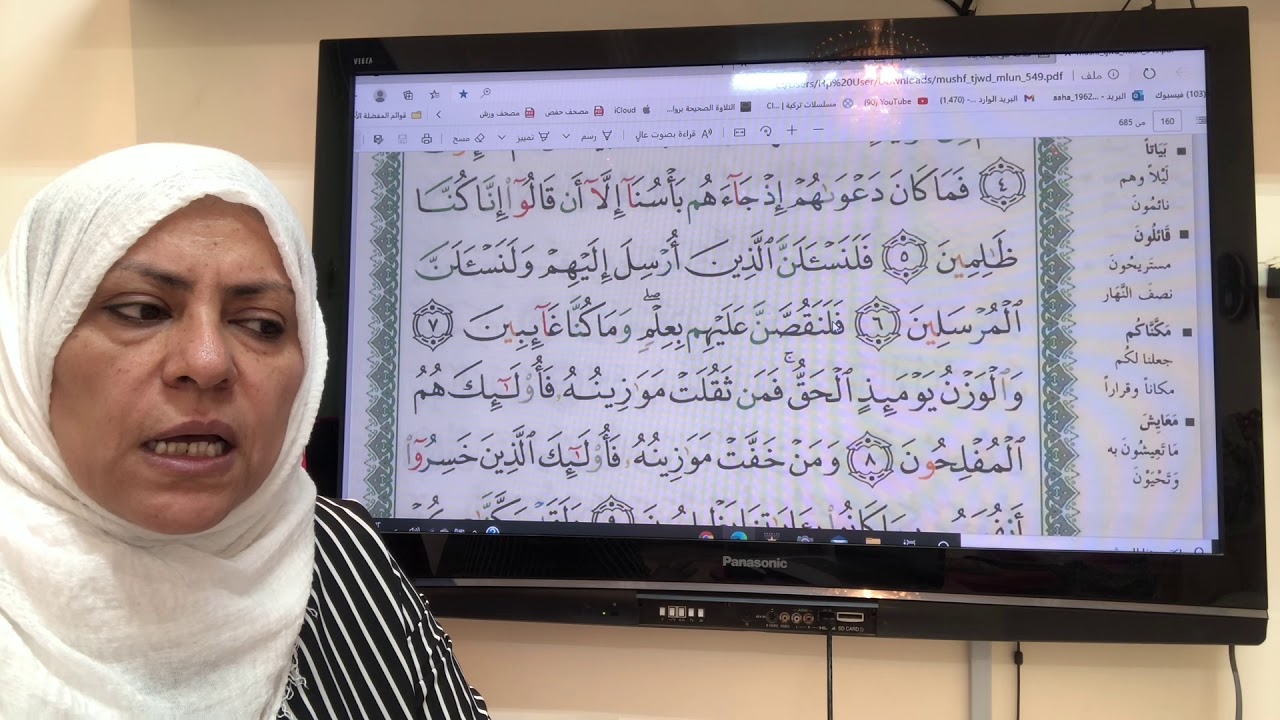 VIERA
Users/Hp%20User/Downloads/mushf_tjwd_mlun_549.pdf | ملف
(103) فيسبوك
البريد - ..._aaha_1962
البريد الوارد - (1,470)
(90) YouTube
مسلسلات تركية | Cl...
التلاوة الصحيحة بروا...
iCloud
مصحف حفص
مصحف ورش
قوائم المفضلة الأ
160 من 685
قراءة بصوت عالٍ
رسم
تمييز
مسح
٤ فَمَا كَانَ دَعْوَىٰهُمْ إِذْ جَآءَهُم بَأْسُنَآ إِلَّآ أَن قَالُوٓا۟ إِنَّا كُنَّا
ظَٰلِمِينَ ٥ فَلَنَسْـَٔلَنَّ ٱلَّذِينَ أُرْسِلَ إِلَيْهِمْ وَلَنَسْـَٔلَنَّ
ٱلْمُرْسَلِينَ ٦ فَلَنَقُصَّنَّ عَلَيْهِم بِعِلْمٍۖ وَمَا كُنَّا غَآئِبِينَ ٧
وَٱلْوَزْنُ يَوْمَئِذٍ ٱلْحَقُّۚ فَمَن ثَقُلَتْ مَوَٰزِينُهُۥ فَأُو۟لَٰٓئِكَ هُمُ
ٱلْمُفْلِحُونَ ٨ وَمَنْ خَفَّتْ مَوَٰزِينُهُۥ فَأُو۟لَٰٓئِكَ ٱلَّذِينَ خَسِرُوٓا۟
بَيَاتاً
لَيْلاً وهم
نائمُونَ
قَائلُونَ
مستَريحُونَ
نصفَ النَّهَار
مَكَّنَّاكُم
جعلنا لكُم
مكاناً وقراراً
مَعَايِشَ
مَا تَعِيشُونَ به
وَتَحْيَوْنَ
Panasonic
SD CARD